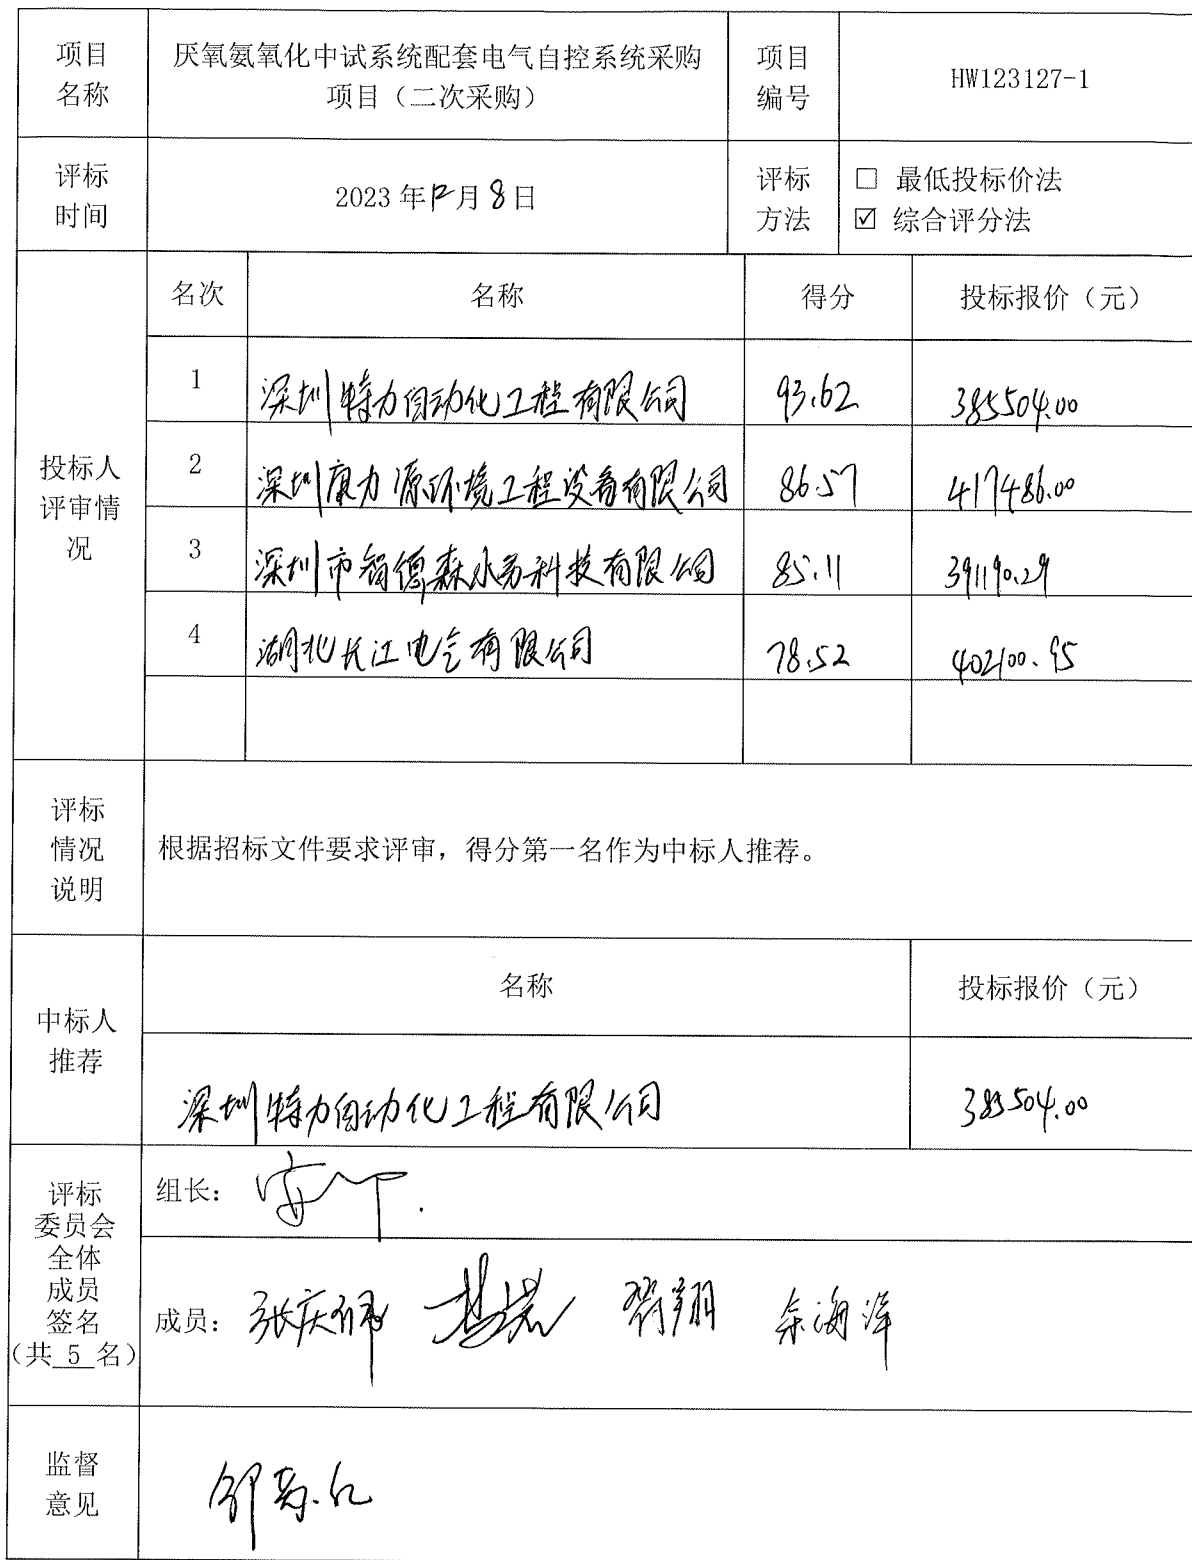 项目名称
厌氧氨氧化中试系统配套电气自控系统采购
项目（二次采购）
项目编号
HW123127-1
评标时间
2023年12月8日
评标方法
□ 最低投标价法
☑ 综合评分法
投标人评审情况
名次 名称 得分 投标报价（元）
1 深圳特力自动化工程有限公司 93.62 385504.00
2 深圳康力源环境工程设备有限公司 86.57 417486.00
3 深圳市智德森水务科技有限公司 85.11 391190.29
4 湖北长江电气有限公司 78.52 402100.95
评标情况说明
根据招标文件要求评审，得分第一名作为中标人推荐。
中标人推荐
名称 投标报价（元）
深圳特力自动化工程有限公司 385504.00
评标
委员会
全体
成员
签名
（共 5 名）
组长：
成员： 余海洋
监督意见